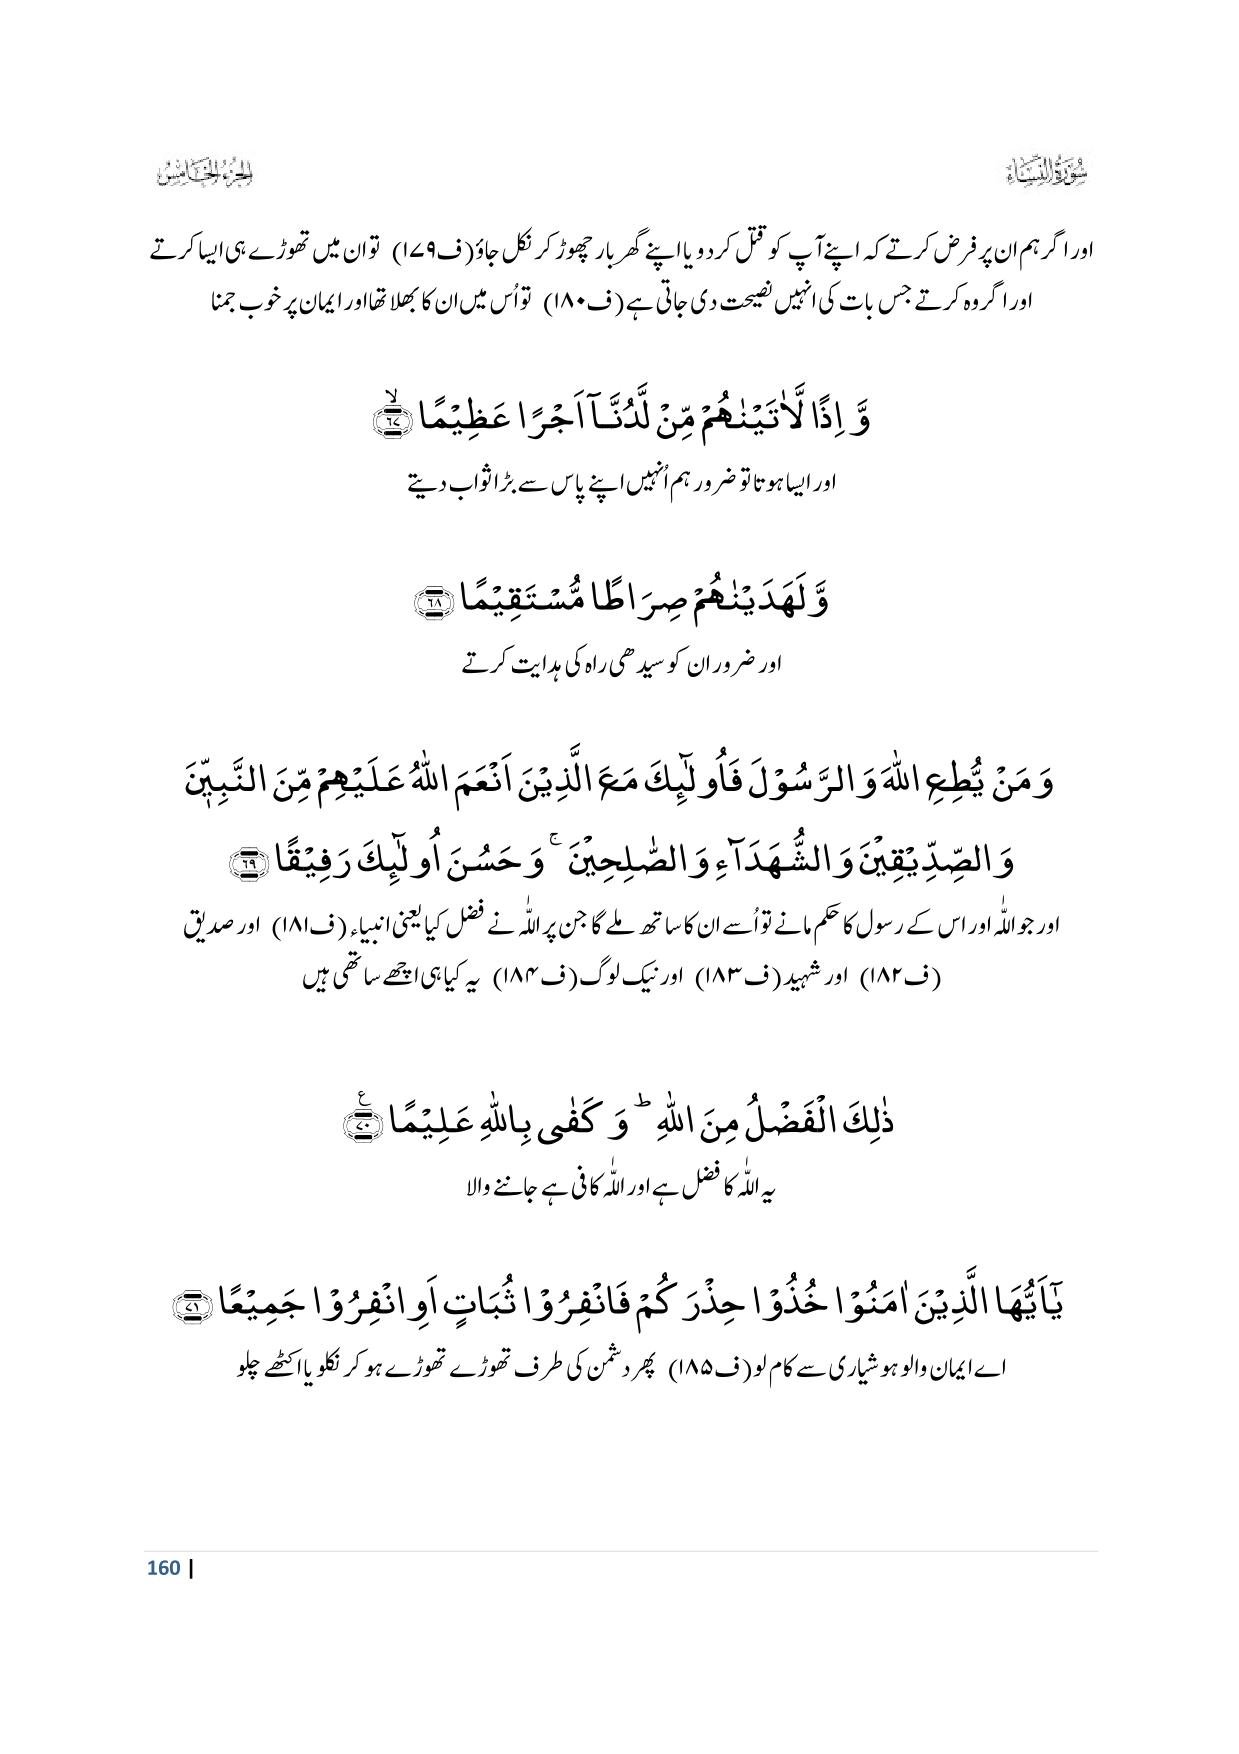 سُوْرَةُ النِّسَاء
الجزء الخامس
اور اگر ہم ان پر فرض کرتے کہ اپنے آپ کو قتل کردو یا اپنے گھر بار چھوڑ کر نکل جاؤ(ف۱۷۹) تو ان میں تھوڑے ہی ایسا کرتے
اور اگر وہ کرتے جس بات کی انہیں نصیحت دی جاتی ہے(ف۱۸۰) تو اُس میں ان کا بھلا تھا اور ایمان پر خوب جمنا
وَّ اِذًا لَّاٰتَيْنٰهُمْ مِّنْ لَّدُنَّاۤ اَجْرًا عَظِيْمًا ۙ‏﴿۶۷﴾
اور ایسا ہوتا تو ضرور ہم اُنہیں اپنے پاس سے بڑا ثواب دیتے
وَّ لَهَدَيْنٰهُمْ صِرَاطًا مُّسْتَقِيْمًا ﴿۶۸﴾
اور ضرور ان کو سیدھی راہ کی ہدایت کرتے
وَ مَنْ يُّطِعِ اللّٰهَ وَ الرَّسُوْلَ فَاُولٰٓئِكَ مَعَ الَّذِيْنَ اَنْعَمَ اللّٰهُ عَلَيْهِمْ مِّنَ النَّبِيّٖنَ
وَ الصِّدِّيْقِيْنَ وَ الشُّهَدَآءِ وَ الصّٰلِحِيْنَ ۚ وَ حَسُنَ اُولٰٓئِكَ رَفِيْقًا ﴿۶۹﴾
اور جو اللّٰہ اور اس کے رسول کا حکم مانے تو اُسے ان کا ساتھ ملے گا جن پر اللّٰہ نے فضل کیا یعنی انبیاء (ف۱۸۱) اور صدیق
(ف۱۸۲) اور شہید (ف۱۸۳) اور نیک لوگ(ف۱۸۴) یہ کیا ہی اچھے ساتھی ہیں
ذٰلِكَ الْفَضْلُ مِنَ اللّٰهِ ؕ وَ كَفٰى بِاللّٰهِ عَلِيْمًا ﴿۷۰﴾ ع
یہ اللّٰہ کا فضل ہے اور اللّٰہ کافی ہے جاننے والا
يٰۤاَيُّهَا الَّذِيْنَ اٰمَنُوْا خُذُوْا حِذْرَكُمْ فَانْفِرُوْا ثُبَاتٍ اَوِ انْفِرُوْا جَمِيْعًا ﴿۷۱﴾
اے ایمان والو ہوشیاری سے کام لو(ف۱۸۵) پھر دشمن کی طرف تھوڑے تھوڑے ہو کر نکلو یا اکٹھے چلو
160 |